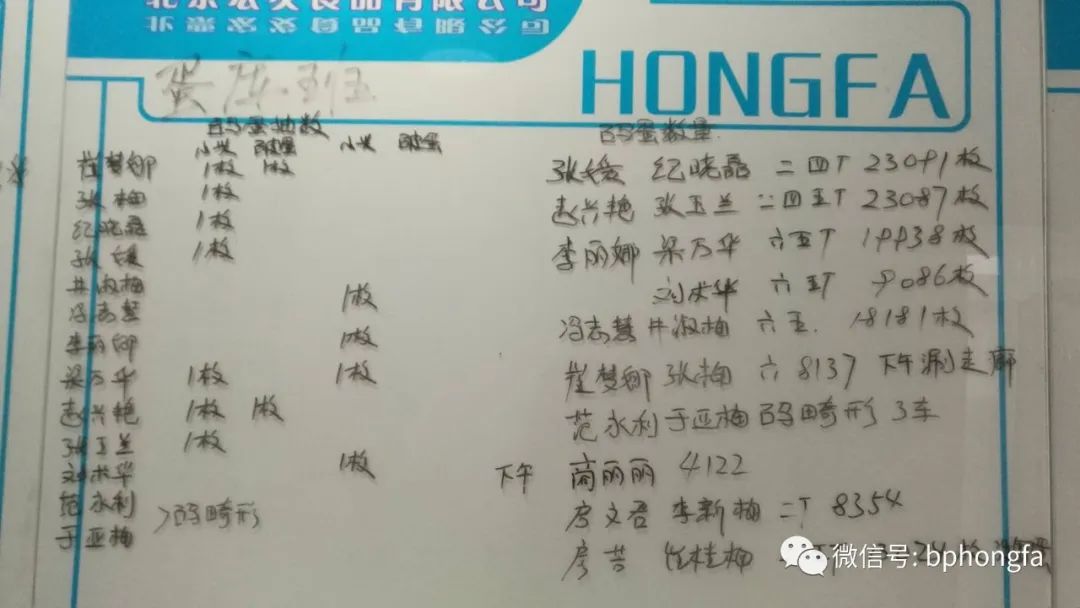 北京宏发食品有限公司
HONGFA
蛋库班
码蛋抽数
小头 破蛋 小头 破蛋
崔梦娜 1枚 1枚
张梅 1枚
纪晓磊 1枚
张媛 1枚
井淑梅
冯志慧 1枚
李丽娜 1枚
梁万华 1枚 1枚
赵兴艳 1枚 1枚
张玉兰 1枚
刘术华 1枚
范永利
于亚梅
>码畸形
码蛋数量
张媛 纪晓磊 二四T 23091枚
赵兴艳 张玉兰 二四五T 23087枚
李丽娜 梁万华 六五T 19938枚
刘术华 六五T 9086枚
冯志慧 井淑梅 六五. 18181枚
崔梦娜 张梅 六 8137 下午涮走廊
范永利 于亚梅 码畸形 3车
下午 商丽丽 4122
房文君 李新梅 二T 8354
房苦 桂梅
微信号: bphongfa